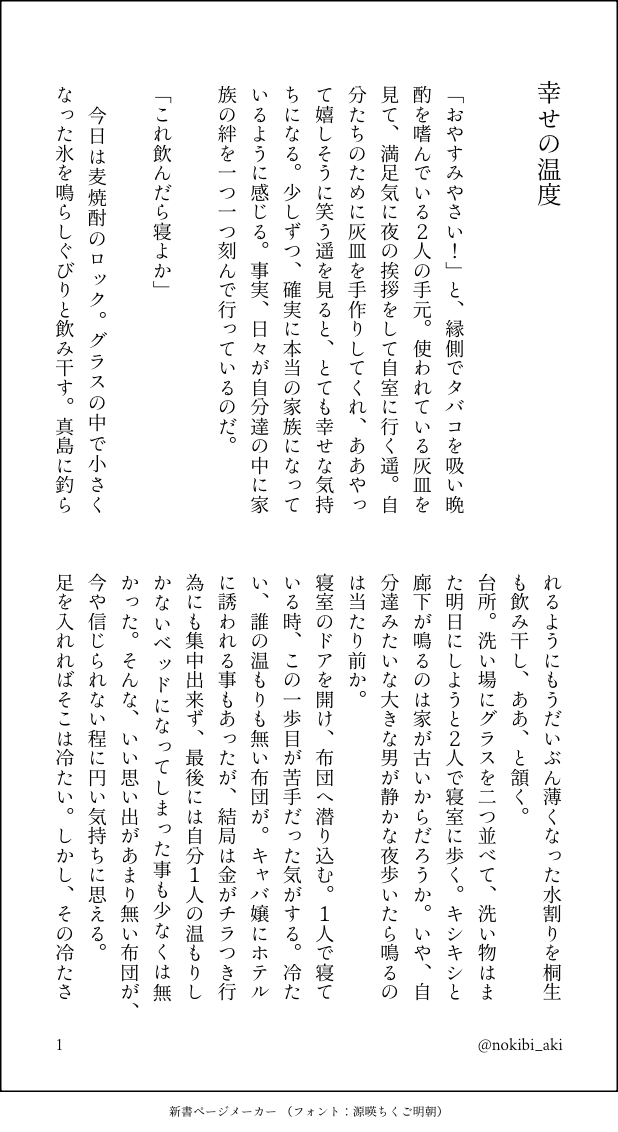 幸せの温度
「おやすみやさい！」と、縁側でタバコを吸い晩
酌を嗜んでいる２人の手元。使われている灰皿を
見て、満足気に夜の挨拶をして自室に行く遥。自
分たちのために灰皿を手作りしてくれ、ああやっ
て嬉しそうに笑う遥を見ると、とても幸せな気持
ちになる。少しずつ、確実に本当の家族になって
いるように感じる。事実、日々が自分達の中に家
族の絆を一つ一つ刻んで行っているのだ。
「これ飲んだら寝よか」
今日は麦焼酎のロック。グラスの中で小さく
なった氷を鳴らしぐびりと飲み干す。真島に釣ら
れるようにもうだいぶん薄くなった水割りを桐生
も飲み干し、ああ、と頷く。
台所。洗い場にグラスを二つ並べて、洗い物はま
た明日にしようと２人で寝室に歩く。キシキシと
廊下が鳴るのは家が古いからだろうか。いや、自
分達みたいな大きな男が静かな夜歩いたら鳴るの
は当たり前か。
寝室のドアを開け、布団へ潜り込む。１人で寝て
いる時、この一歩目が苦手だった気がする。冷た
い、誰の温もりも無い布団が。キャバ嬢にホテル
に誘われる事もあったが、結局は金がチラつき行
為にも集中出来ず、最後には自分１人の温もりし
かないベッドになってしまった事も少なくは無
かった。そんな、いい思い出があまり無い布団が、
今や信じられない程に円い気持ちに思える。
足を入れればそこは冷たい。しかし、その冷たさ
1
@nokibi_aki
新書ページメーカー （フォント：源暎ちくご明朝）